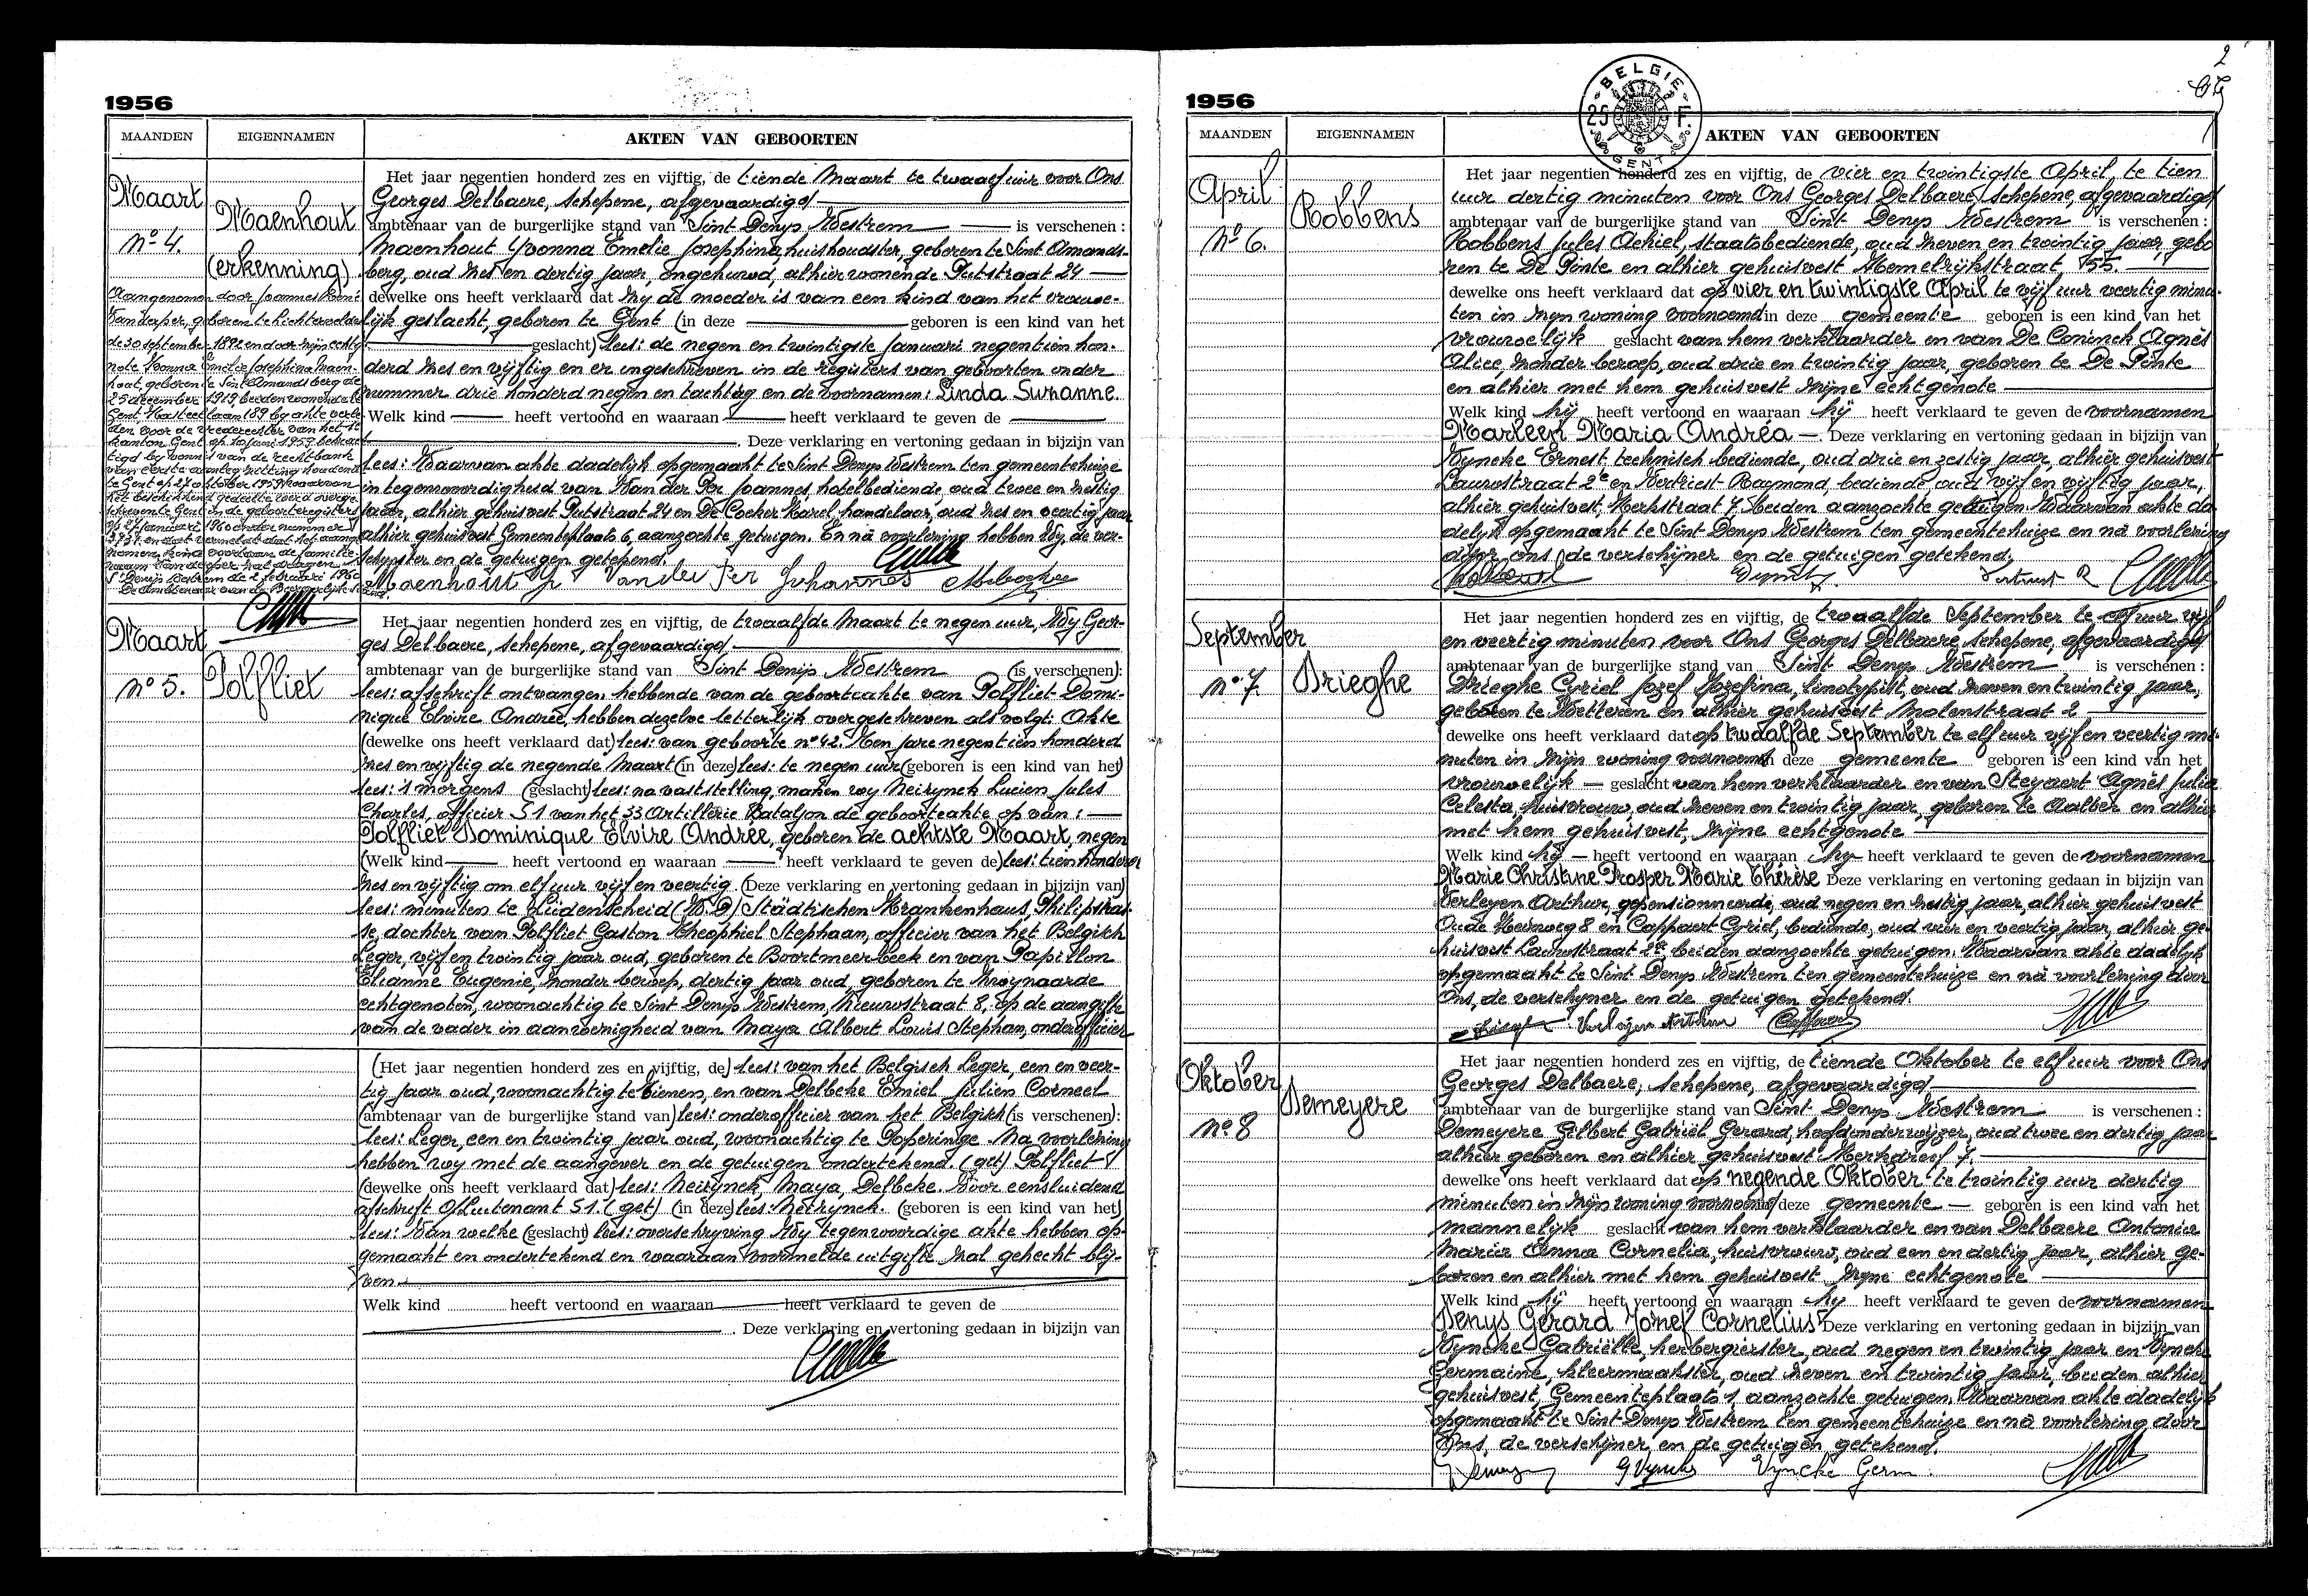 1956
MAANDEN EIGENNAMEN AKTEN VAN GEBOORTEN
Maart
Nº 4.
Maenhout
(erkenning)
Aangenomen door Joannes
Van der per, geboren te Lichtervelde
de 30 september 1892 en door zijn echtge
note Yvonna Emelie Josephina Maen-
hout, geboren te Sint Amandsberg de
25 december 1919, beiden wonende te
Gent, Kasteellaan 189 by akte verle
den voor de vrederechter van het 1e
kanton Gent op 10 juni 1959, bekrach
tigd by vonnis van de rechtbank
van eerste aanleg zitting houdend
te Gent op 27 oktober 1959 waarvan
het beschikkend gedeelte werd overge
schreven te Gent in de geboorteregisters
op 27 januari 1960 onder nummer
en dat vermeldt dat het aange
nomen kind voortaan de familie-
naam Van der per zal dragen.
St Denijs Westrem de 2 februari 1960
De Ambtenaar van de Burgerlijke Stand
Het jaar negentien honderd zes en vijftig, de tiende Maart te twaalf uur voor Ons
Georges Delbaere, schepene, afgevaardigd
ambtenaar van de burgerlijke stand van Sint Denys Westrem is verschenen :
Maenhout Yvonna Emelie Josephina, huishoudster, geboren te Sint Amands-
berg, oud zes en dertig jaar, ongehuwd, alhier wonende Putstraat 24
dewelke ons heeft verklaard dat zy de moeder is van een kind van het vrouwe-
lijk geslacht, geboren te Gent (in deze geboren is een kind van het
geslacht) lees: de negen en twintigste Januari negentien hon-
derd zes en vijftig en er ingeschreven in de registers van geboorten onder
nummer drie honderd negen en tachtig en de voornamen: Linda Suzanne.
Welk kind heeft vertoond en waaraan heeft verklaard te geven de
. Deze verklaring en vertoning gedaan in bijzijn van
lees: Waarvan akte dadelijk opgemaakt te Sint Denys Westrem ten gemeentehuize
in tegenwoordigheid van Van der Per Joannes, hotelbediende, oud twee en zestig
jaar, alhier gehuisvest Putstraat 24 en De Cocker Karel, handelaar, oud zes en veertig jaar
alhier gehuisvest Gemeenteplaats 6, aanzochte getuigen. En na voorlezing hebben Wy, de ver-
schynster en de getuigen getekend.
Maenhout Y Vander Per Johannes
Maart
Nº 5.
Polfliet
Het jaar negentien honderd zes en vijftig, de twaalfde Maart te negen uur, Wy Geor-
ges Delbaere, schepene, afgevaardigd
ambtenaar van de burgerlijke stand van Sint Denijs Westrem (is verschenen):
lees: afschrift ontvangen hebbende van de geboorteakte van Polfliet Domi-
nique Elvire Andrée, hebben dezelve letterlijk overgeschreven als volgt: Akte
(dewelke ons heeft verklaard dat) lees: van geboorte nº 42. Ten jare negentien honderd
zes en vijftig de negende Maart (in deze) lees: te negen uur (geboren is een kind van het)
lees: 's morgens (geslacht) lees: na vaststelling, maken wy Neirynck Lucien Jules
Charles, officier S1 van het 33 Artillerie Bataljon de geboorteakte op van:
Polfliet Dominique Elvire Andrée, geboren de achtste Maart, negen
(Welk kind heeft vertoond en waaraan heeft verklaard te geven de) lees: tien honderd
zes en vijftig om elf uur vijf en veertig (Deze verklaring en vertoning gedaan in bijzijn van)
lees: minuten te Lüdenscheid (W.D) Städtischen Krankenhaus, Philipstras-
se, dochter van Polfliet Gaston Theophiel Stephaan, officier van het Belgisch
Leger, vijf en twintig jaar oud, geboren te Boortmeerbeek en van Papillon
Elianne Eugenie, zonder beroep, dertig jaar oud, geboren te Zwijnaarde
echtgenoten, woonachtig te Sint Denys Westrem, Nieuwstraat 8, op de aangifte
van de vader in aanwezigheid van Maya Albert Louis Stephan, onderofficier
(Het jaar negentien honderd zes en vijftig, de) lees: van het Belgisch Leger, een en veer-
tig jaar oud, woonachtig te Tienen, en van Delbeke Emiel Julien Corneel
(ambtenaar van de burgerlijke stand van) lees: onderofficier van het Belgisch (is verschenen):
lees: Leger, een en twintig jaar oud, woonachtig te Poperinge. Na voorlezing
hebben wy met de aangever en de getuigen ondertekend. (get) Polfliet
(dewelke ons heeft verklaard dat) lees: Neirynck, Maya, Delbeke. Voor eensluidend
afschrift Olluitenant S1. (get) (in deze) lees: Neirynck. (geboren is een kind van het)
lees: Van welke (geslacht) lees: overschryving Wy tegenwoordige akte hebben op-
gemaakt en ondertekend en waaraan voormelde uitgifte zal gehecht blij-
ven.
Welk kind heeft vertoond en waaraan heeft verklaard te geven de
. Deze verklaring en vertoning gedaan in bijzijn van
2
BELGIE
25 F.
GENT
1956
MAANDEN EIGENNAMEN AKTEN VAN GEBOORTEN
April
Nº 6.
Robbens
Het jaar negentien honderd zes en vijftig, de vier en twintigste April, te tien
uur dertig minuten voor Ons Georges Delbaere, schepene, afgevaardigd
ambtenaar van de burgerlijke stand van Sint Denys Westrem is verschenen :
Robbens Jules Achiel, staatsbediende, oud zeven en twintig jaar, gebo
ren te De Pinte en alhier gehuisvest Hemelrijkstraat, 155.
dewelke ons heeft verklaard dat op vier en twintigste April te vijf uur veertig minu-
ten in zijn woning voornoemd in deze gemeente geboren is een kind van het
vrouwelijk geslacht van hem verklaarder en van De Coninck Agnès
Alice, zonder beroep, oud drie en twintig jaar, geboren te De Pinte
en alhier met hem gehuisvest zijne echtgenote
Welk kind hij heeft vertoond en waaraan hij heeft verklaard te geven de voornamen
Marleen Maria Andréa — . Deze verklaring en vertoning gedaan in bijzijn van
Vyncke Ernest, technisch bediende, oud drie en zestig jaar, alhier gehuisvest
Lauwstraat 2e en Vertriest Raymond, bediende oud vijf en vijftig jaar,
alhier gehuisvest, Kerkstraat 7. Beiden aanzochte getuigen. Waarvan akte da
delyk opgemaakt te Sint Denys Westrem ten gemeentehuize en na voorlezing
door ons, de verschijner en de getuigen getekend.
Vertriest R
September
Nº 7.
Drieghe
Het jaar negentien honderd zes en vijftig, de twaalfde September te elf uur vijf
en veertig minuten voor Ons Georges Delbaere, schepene, afgevaardigd
ambtenaar van de burgerlijke stand van Sint Denys Westrem is verschenen :
Drieghe Cyriel Jozef Jozefina, linotypist, oud zeven en twintig jaar,
geboren te Wetteren en alhier gehuisvest Molenstraat 2
dewelke ons heeft verklaard dat op twaalfde September te elf uur vijf en veertig mi-
nuten in zijn woning voornoemd in deze gemeente geboren is een kind van het
vrouwelijk — geslacht van hem verklaarder en van Steyaert Agnès Julia
Celesta, huisvrouw, oud zeven en twintig jaar, geboren te Aalter en alhier
met hem gehuisvest, zijne echtgenote
Welk kind hij — heeft vertoond en waaraan hij heeft verklaard te geven de voornamen
Marie Christine Prosper Marie Thérèse Deze verklaring en vertoning gedaan in bijzijn van
Verleyen Arthur, gepensionneerde, oud negen en zestig jaar, alhier gehuisvest
Oude Heirweg 8 en Cappaert Cyriel, bediende, oud vier en veertig jaar, alhier ge-
huisvest Lauwstraat 2a beiden aanzochte getuigen. Waarvan akte dadelijk
opgemaakt te Sint Denys Westrem ten gemeentehuize en na voorlezing door
Ons, de verschyner en de getuigen getekend.
Oktober
Nº 8
Demeyere
Het jaar negentien honderd zes en vijftig, de tiende Oktober te elf uur voor Ons
Georges Delbaere, schepene, afgevaardigd
ambtenaar van de burgerlijke stand van Sint Denys Westrem is verschenen :
Demeyere Gilbert Gabriël Gerard, hoofdonderwijzer, oud twee en dertig jaar
alhier geboren en alhier gehuisvest Kerkdreef 7.
dewelke ons heeft verklaard dat op negende Oktober te twintig uur dertig
minuten in zijn woning voornoemd in deze gemeente — geboren is een kind van het
mannelijk geslacht van hem verklaarder en van Delbaere Antonia
Maria Anna Cornelia, huisvrouw, oud een en dertig jaar, alhier ge-
boren en alhier met hem gehuisvest zijne echtgenote
Welk kind hij heeft vertoond en waaraan hij heeft verklaard te geven de voornamen
Denys Gerard Jozef Cornelius Deze verklaring en vertoning gedaan in bijzijn van
Vyncke Gabriëlle, herbergierster, oud negen en twintig jaar en Vyncke
Germaine, kleermaakster, oud zeven en twintig jaar, beiden alhier
gehuisvest, Gemeenteplaats 1, aanzochte getuigen. Waarvan akte dadelijk
opgemaakt te Sint Denys Westrem ten gemeentehuize en na voorlezing door
Ons, de verschijner en de getuigen getekend.
G Vyncke Vyncke Germ.